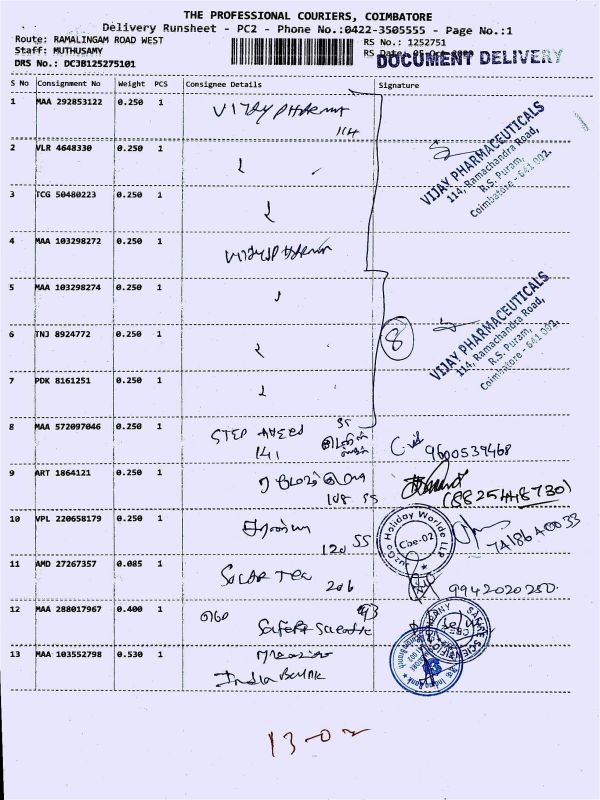 THE PROFESSIONAL COURIERS, COIMBATORE
Delivery Runsheet - PC2 - Phone No.:0422-3505555 - Page No.:1
Route: RAMALINGAM ROAD WEST
RS No.: 1252751
Staff: MUTHUSAMY
RS Date: 05-Oct
DOCUMENT DELIVERY
DRS No.: DCJB125275101
S No Consignment No Weight PCS Consignee Details Signature
1 MAA 292853122 0.250 1 VIJAY PHARMA
114
VIJAY PHARMACEUTICALS
114, Ramachandra Road,
R.S. Puram,
Coimbatore - 641 002.
2 VLR 4648330 0.250 1
3 TCG 50480223 0.250 1
4 MAA 103298272 0.250 1 VIJAY PHARMA
5 MAA 103298274 0.250 1
VIJAY PHARMACEUTICALS
114, Ramachandra Road,
R.S. Puram,
Coimbatore - 641 002.
6 TNJ 8924772 0.250 1
8
7 PDK 8161251 0.250 1
8 MAA 572097046 0.250 1 STEP AHEED
141
9600539468
9 ART 1864121 0.250 1
108 SS
(8825448730)
10 VPL 220658179 0.250 1
120 SS
Holiday Worlde LLP
Cbe-02
11 AMD 27267357 0.085 1 SOLAR TEC 206
9942020250
12 MAA 288017967 0.400 1
13 MAA 103552798 0.530 1
India Bank
13-02